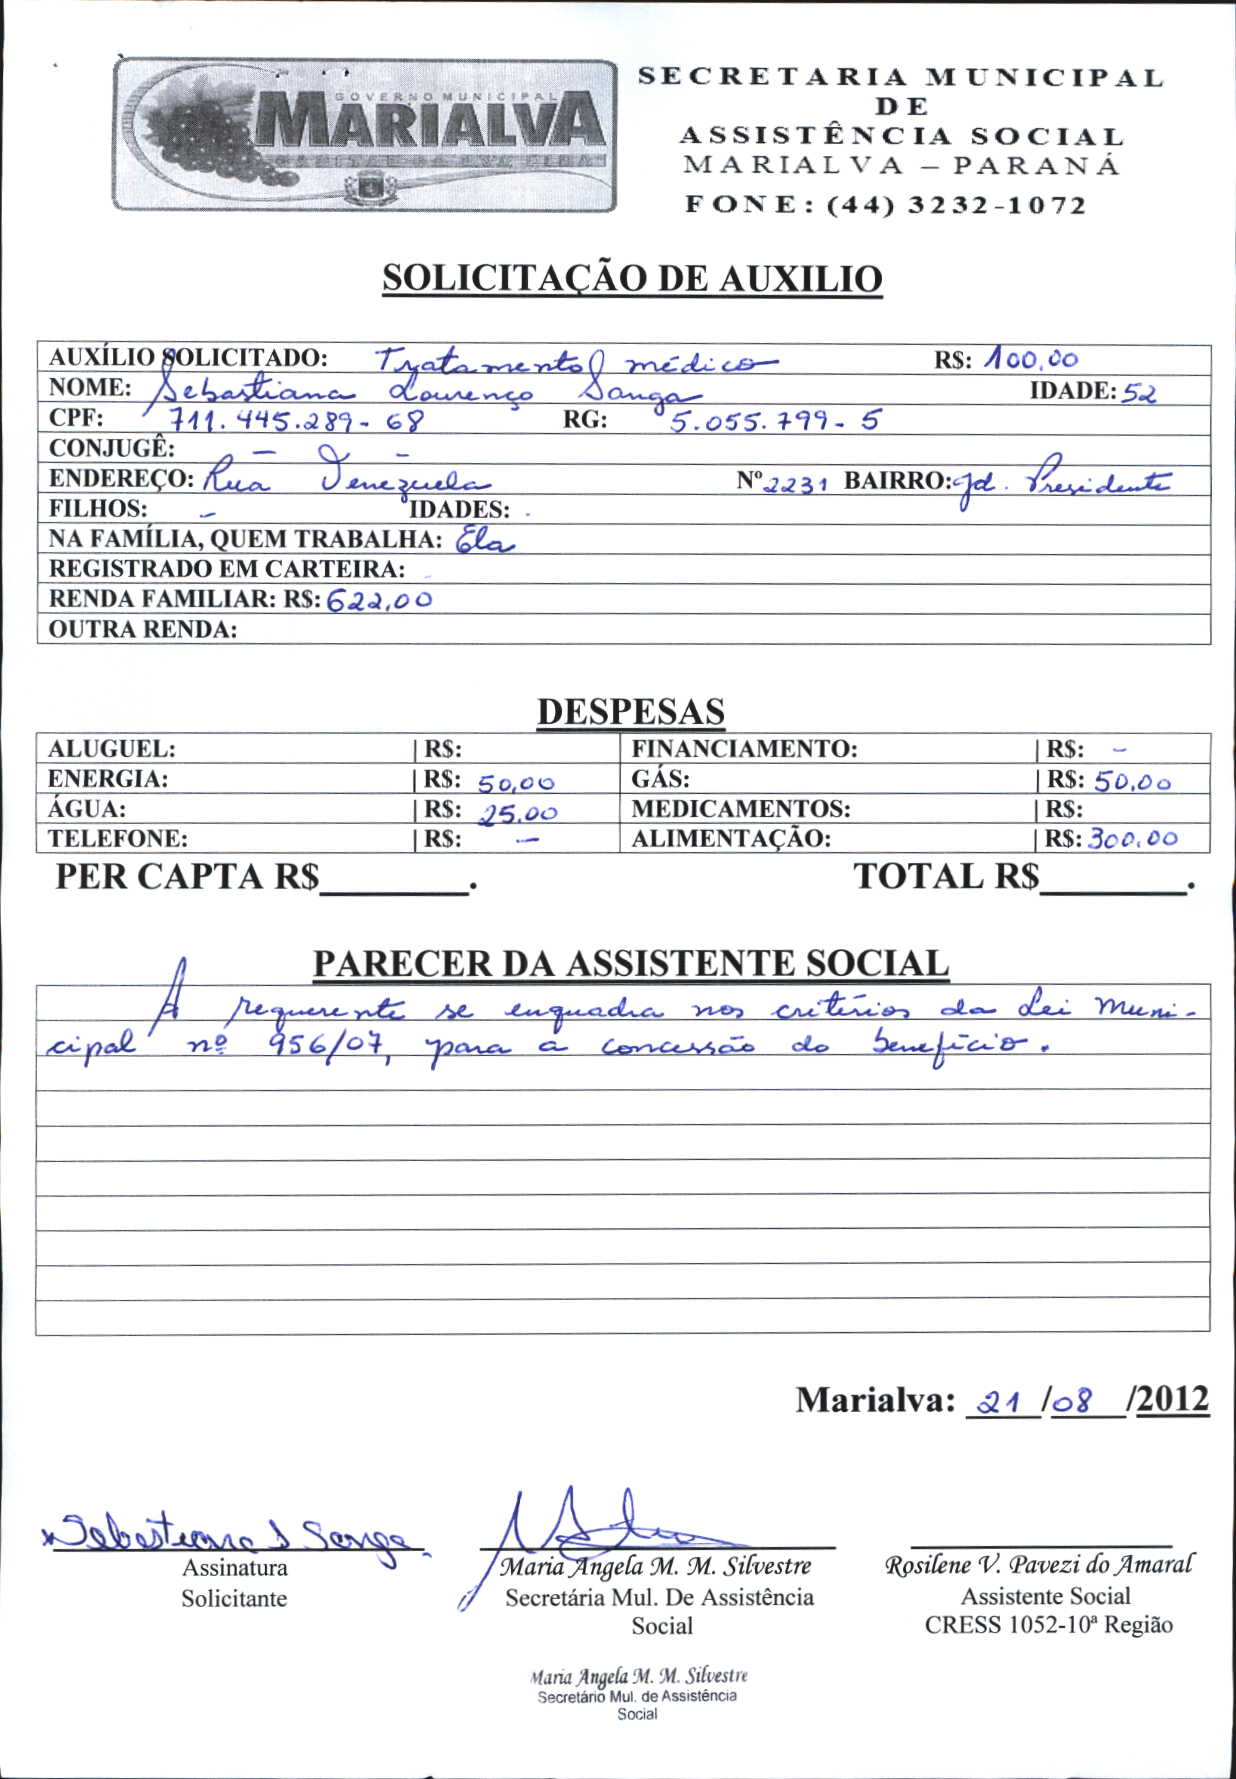 GOVERNO MUNICIPAL
MARIALVA
CAPITAL DA UVA FINA
SECRETARIA MUNICIPAL
DE
ASSISTÊNCIA SOCIAL
MARIALVA – PARANÁ
FONE: (44) 3232-1072
SOLICITAÇÃO DE AUXILIO
AUXÍLIO SOLICITADO: Tratamento médico R$: 100,00
NOME: Sebastiana Lourenço Sanga IDADE: 52
CPF: 711.445.289-68 RG: 5.055.799-5
CONJUGÊ: - -
ENDEREÇO: Rua Venezuela Nº 2231 BAIRRO: Jd. Presidente
FILHOS: - IDADES: .
NA FAMÍLIA, QUEM TRABALHA: Ela
REGISTRADO EM CARTEIRA:
RENDA FAMILIAR: R$: 622,00
OUTRA RENDA:
DESPESAS
ALUGUEL: | R$: FINANCIAMENTO: | R$: -
ENERGIA: | R$: 50,00 GÁS: | R$: 50,00
ÁGUA: | R$: 25,00 MEDICAMENTOS: | R$:
TELEFONE: | R$: - ALIMENTAÇÃO: | R$: 300,00
PER CAPTA R$________. TOTAL R$________.
PARECER DA ASSISTENTE SOCIAL
A requerente se enquadra nos critérios da Lei Muni-
cipal nº 956/07, para a concessão do benefício.
Marialva: 21/08/2012
Sebastiana L Sanga
Assinatura Maria Angela M. M. Silvestre Rosilene V. Pavezi do Amaral
Solicitante Secretária Mul. De Assistência Assistente Social
Social CRESS 1052-10ª Região
Maria Angela M. M. Silvestre
Secretário Mul. de Assistência
Social